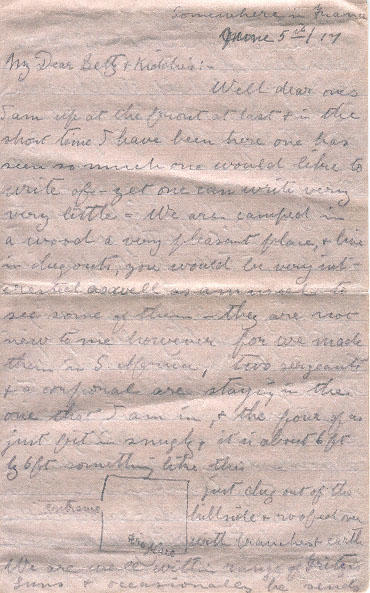 Somewhere in France
June 5th/17
My Dear Betty & Kiddies:-
Well dear ones
I am up at the front at last & in the
short time I have been here one has
seen so much one would like to
write of - yet one can write very
very little - We are camped in
a wood a very pleasant place, & live
in dug outs, you would be very int-
erested as well as amused to
see some of them - they are not
new to me however for we made
them in S. Africa, two sergeants
& a corporal are staying in the
one that I am in, & the four of us
just fit in snugly it is about 6 ft
by 6 ft something like this
just dug out of the
entrance
hillside & roofed over
fire place
with branches & earth
We are well within range of Fritz's
guns & occasionally he sends